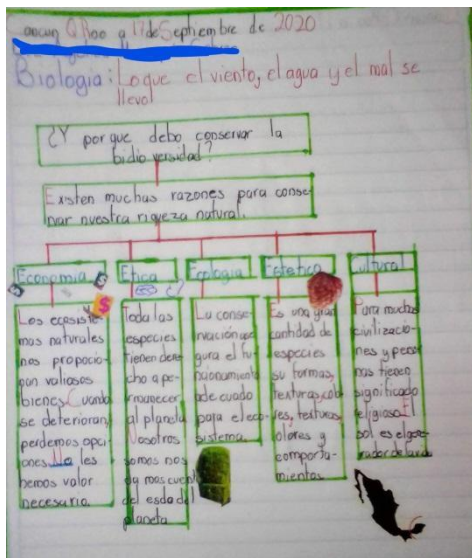 ancun QRoo a 17 de Septiembre de 2020
Biologia: Lo que el viento, el agua y el mal se
llevo!
¿Y por que debo conservar la
bidio versidad?
Existen muchas razones para conser
var nuestra riqueza natural.
Economia
Los ecosiste
mas naturales
nos propocio
nan valiosos
bienes Cuando
se deterioran,
perdemos opci
ones les
hemos valor
necesario.
Etica
Toda las
especies
tienen dere
cho a pe-
rmanecer
al planeta
Nosotros
somos nos
da mas cuenta
del esda del
planeta
Ecologia
La conse-
rvación
gura el fu-
ncionamiento
ade cuado
para el eco-
sistema.
Estetica
Es una gran
cantidad de
especies
su formas,
texturas, colo
res, texturas
olores y
comporta-
mientos.
Cultural
Para muchas
civilizacio-
nes y perso
nas tienen
significado
religioso El
sol es el gene
rador de la vida